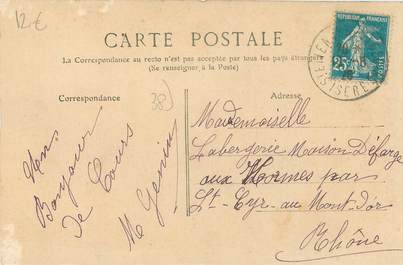 12€
CARTE POSTALE
La Correspondance au recto n'est pas acceptée par tous les pays étrangers
(Se renseigner à la Poste)
Correspondance
Adresse
38)
Mon
Bonjour
de Cours
M Genin
Mademoiselle
Labergerie Maison Défarge
aux Hormes par
St-Cyr-au Mont-d'or
Rhône
REPUBLIQUE FRANÇAISE
25c
POSTES
ISERE